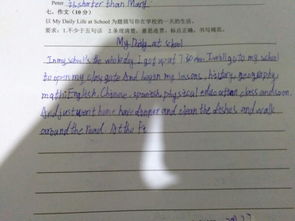 Peter is shorter than Mary.
七、作文（10分）
以 My Daily Life at School 为题描写你在学校的一天的生活。
要求：1.不少于五句话 2.条理清楚，意思连贯，标点正确，书写规范。
My Daily at school
In my school's the I get up at 7 I will go to my school
to open my class gate And began my lessons, history, geography
math English, Chinese, spanish, physical education class and soon.
And just went home have dinner and clean the dishes and walk
around the road. At the